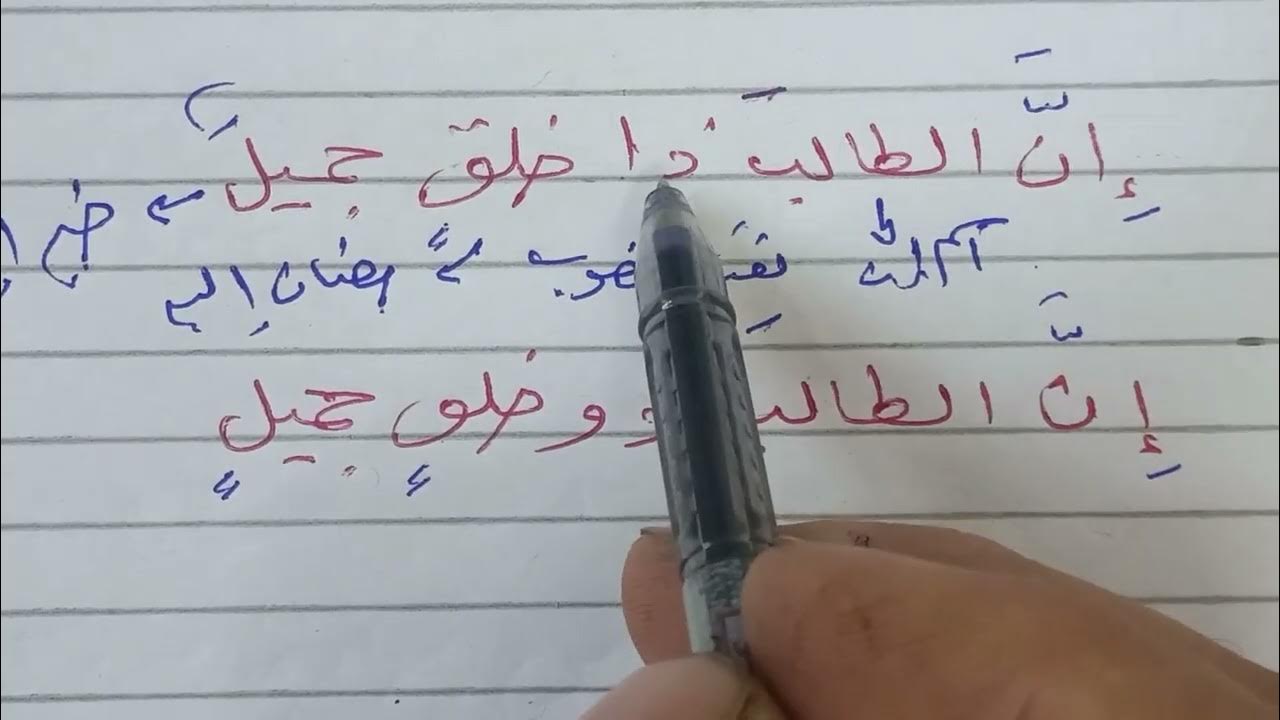 إنَّ الطالبَ ذا خلق جميلٌ
اسم إنَّ نعت منصوب مضاف إليه
إِنَّ الطالب ذو خلقٍ جميلٍ